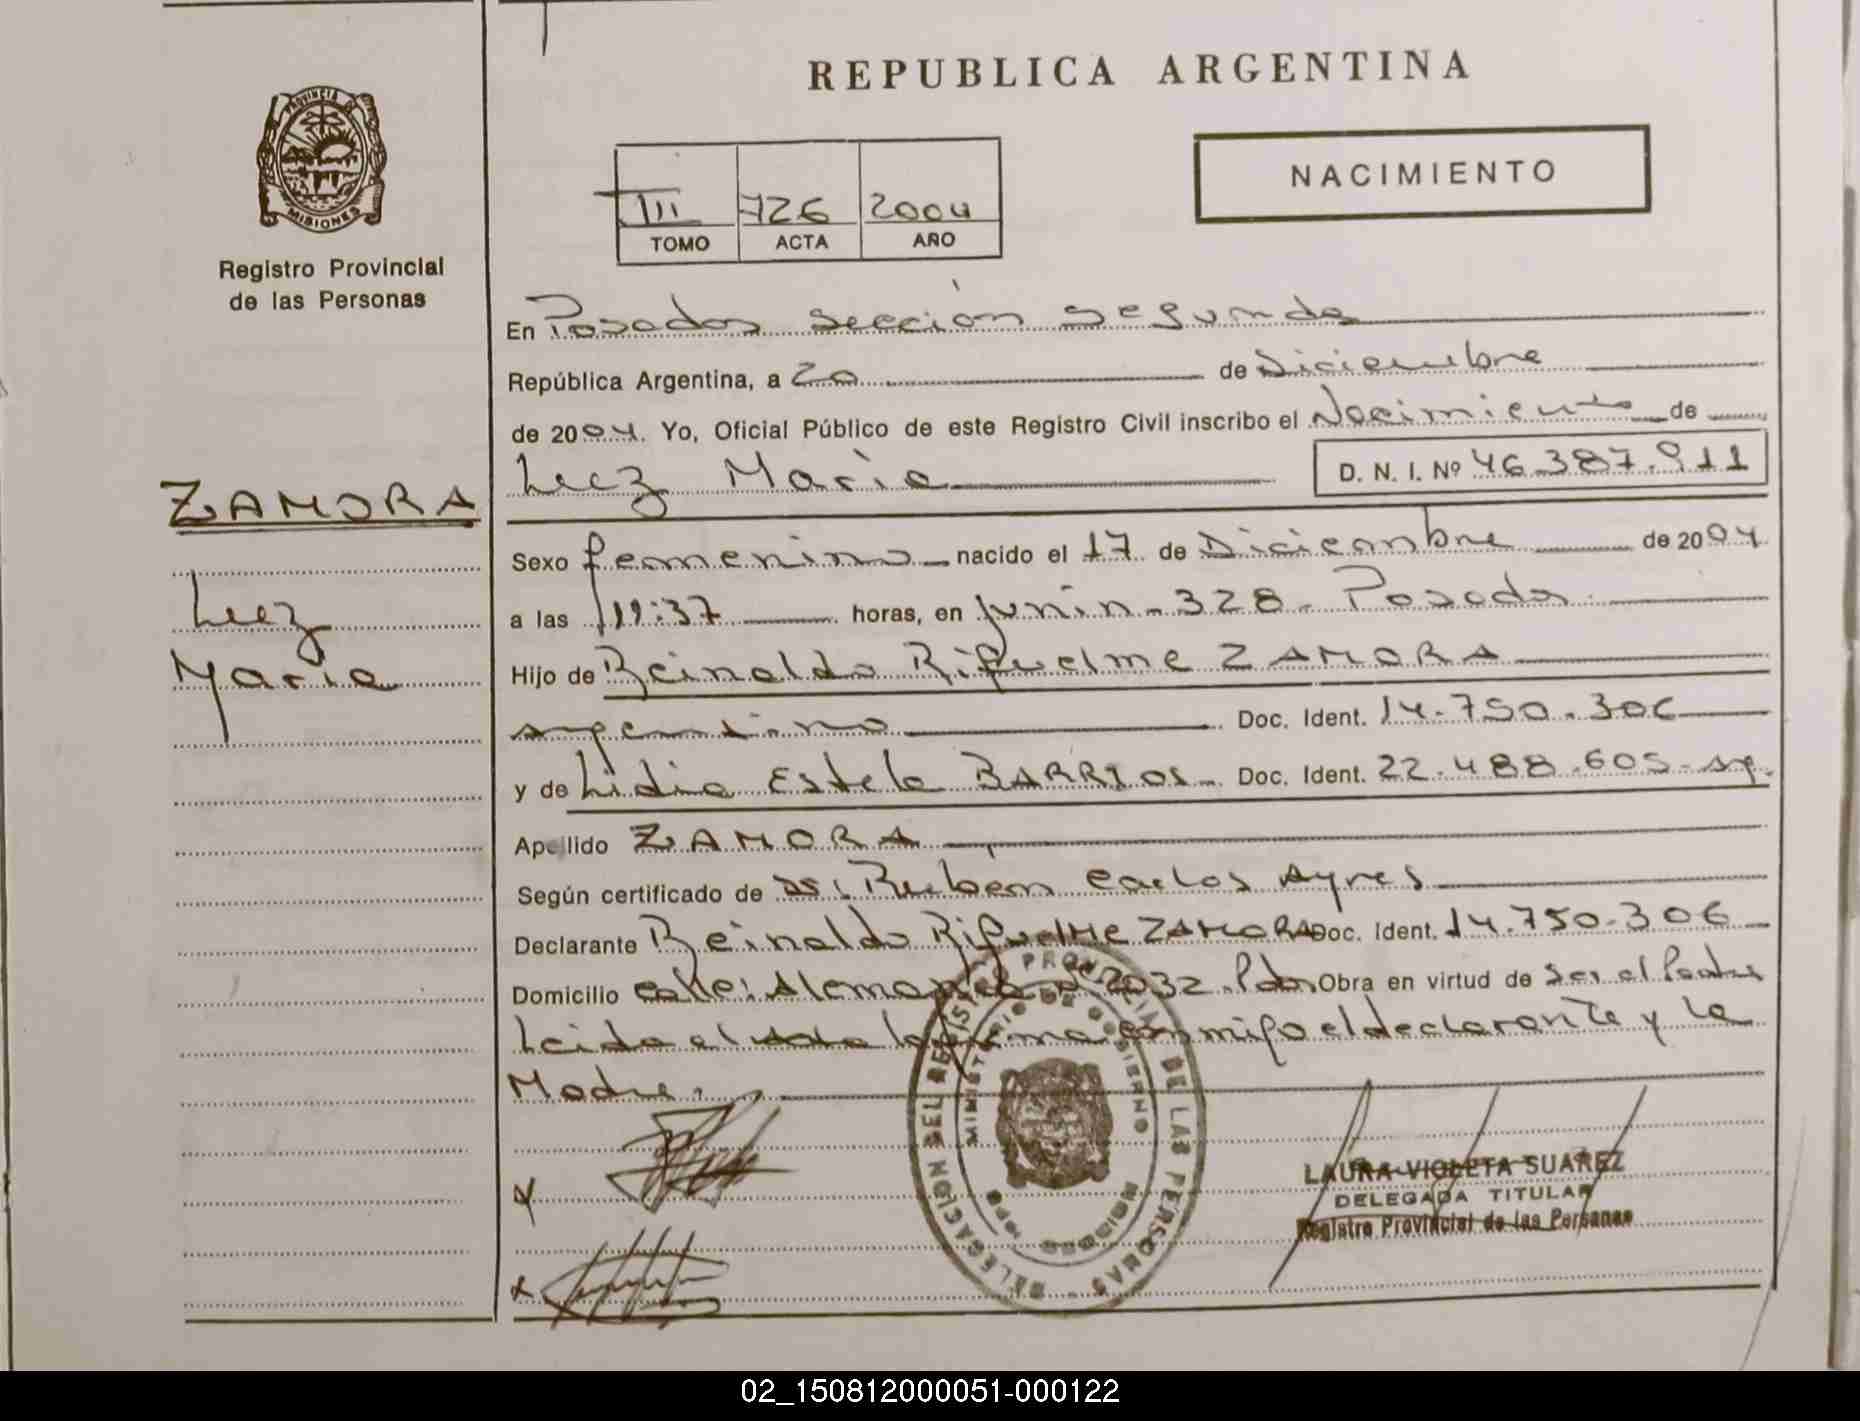 REPUBLICA ARGENTINA
PROVINCIA DE
MISIONES
Registro Provincial
de las Personas
III 726 2004
TOMO ACTA AÑO
NACIMIENTO
En Posadas sección segunda
República Argentina, a 20 de Diciembre
de 2004. Yo, Oficial Público de este Registro Civil inscribo el Nacimiento de
Luz Maria D. N. I. Nº 46.387.911
ZAMORA
Luz
Maria
Sexo femenino nacido el 17 de Diciembre de 2004
a las 11:37 horas, en Junin 328. Posadas
Hijo de Reinaldo Rifuelme ZAMORA
argentino Doc. Ident. 14.750.306
y de Lidia Estela BARRIOS Doc. Ident. 22.488.605
Apellido ZAMORA
Según certificado de Ruben Carlos Ayres
Declarante Reinaldo Rifuelme ZAMORA Doc. Ident. 14.750.306
Domicilio calle: Alemania 2032. Pdas Obra en virtud de ser el Padre
Leida el Acta la firma conmigo el declarante y la
Madre.
DELEGACION DEL REGISTRO PROVINCIAL DE LAS PERSONAS
MINISTERIO DE GOBIERNO
MISIONES
LAURA VIOLETA SUAREZ
DELEGADA TITULAR
Registro Provincial de las Personas
02_150812000051-000122